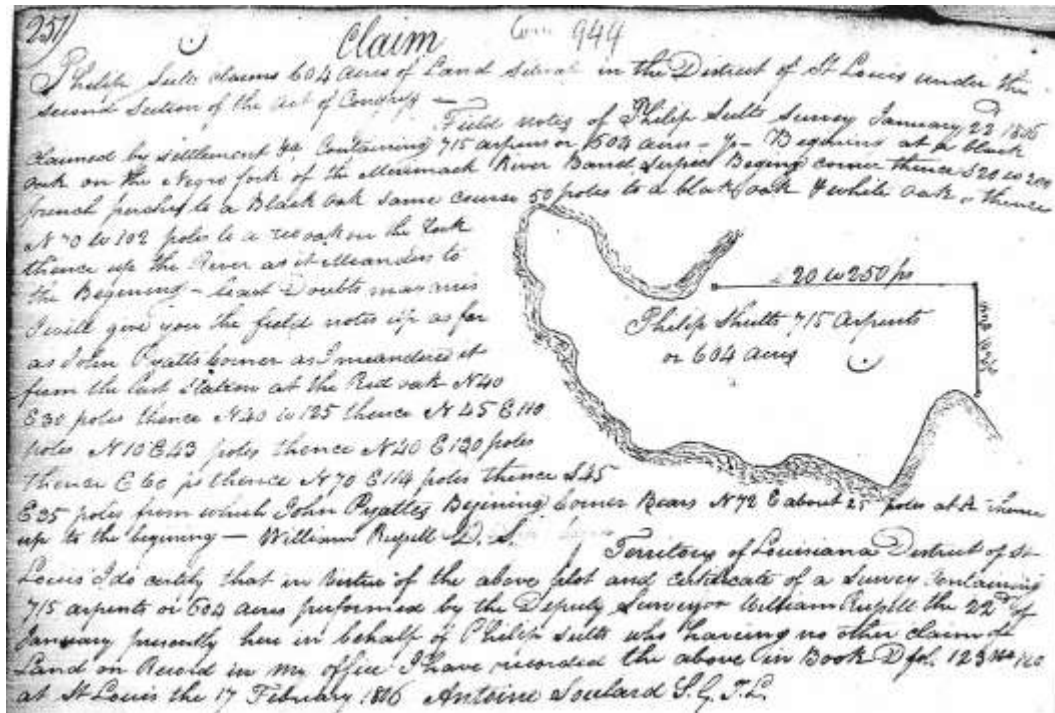 251)
Claim
Com 944
Philip Sults claims 604 Acres of Land Situat in the District of St Louis under the
second Section of the Act of Congress —
Field notes of Philip Sults Survey January 22d 1806
claimed by settlement &c. Containing 715 arpens or 604 acres - Begining at a black
oak on the Negro fork of the Merrimack River Band Beging corner thence S 20 W 200
french perches to a Black oak same course 50 poles to a black oak & white oak, thence
N 70 W 102 poles to a red oak on the
thence up the River as it Meanders to
the Begining - least Doubts may aris
I will give you the field notes up as far
as John Pyatts Corner as I meandered it
from the last Station at the Red oak N 40
E 30 poles thence N 40 W 125 thence N 45 E 110
poles N 10 E 43 poles thence N 40 E 130 poles
thence E 60 ps thence N 70 E 114 poles thence S 45
E 35 poles from which John Pyattes Begining Corner Bears N 72 E about 25 poles at A thence
up to the begining — William Russell D. S.
20 W 250 ps
Philip Shults 715 Arpents
or 604 acres
Territory of Louisiana District of St
Louis I do certify that in Virtue of the above plot and certificate of a Survey Containing
715 arpents or 604 acres performed by the Deputy Surveyor William Russell the 22d of
January presently here in behalf of Philip Sults who having no other claim of
Land on Record in my office I have recorded the above in Book D fol. 123 No 120
at St Louis the 17 February 1806 Antoine Soulard S. G. T. L.